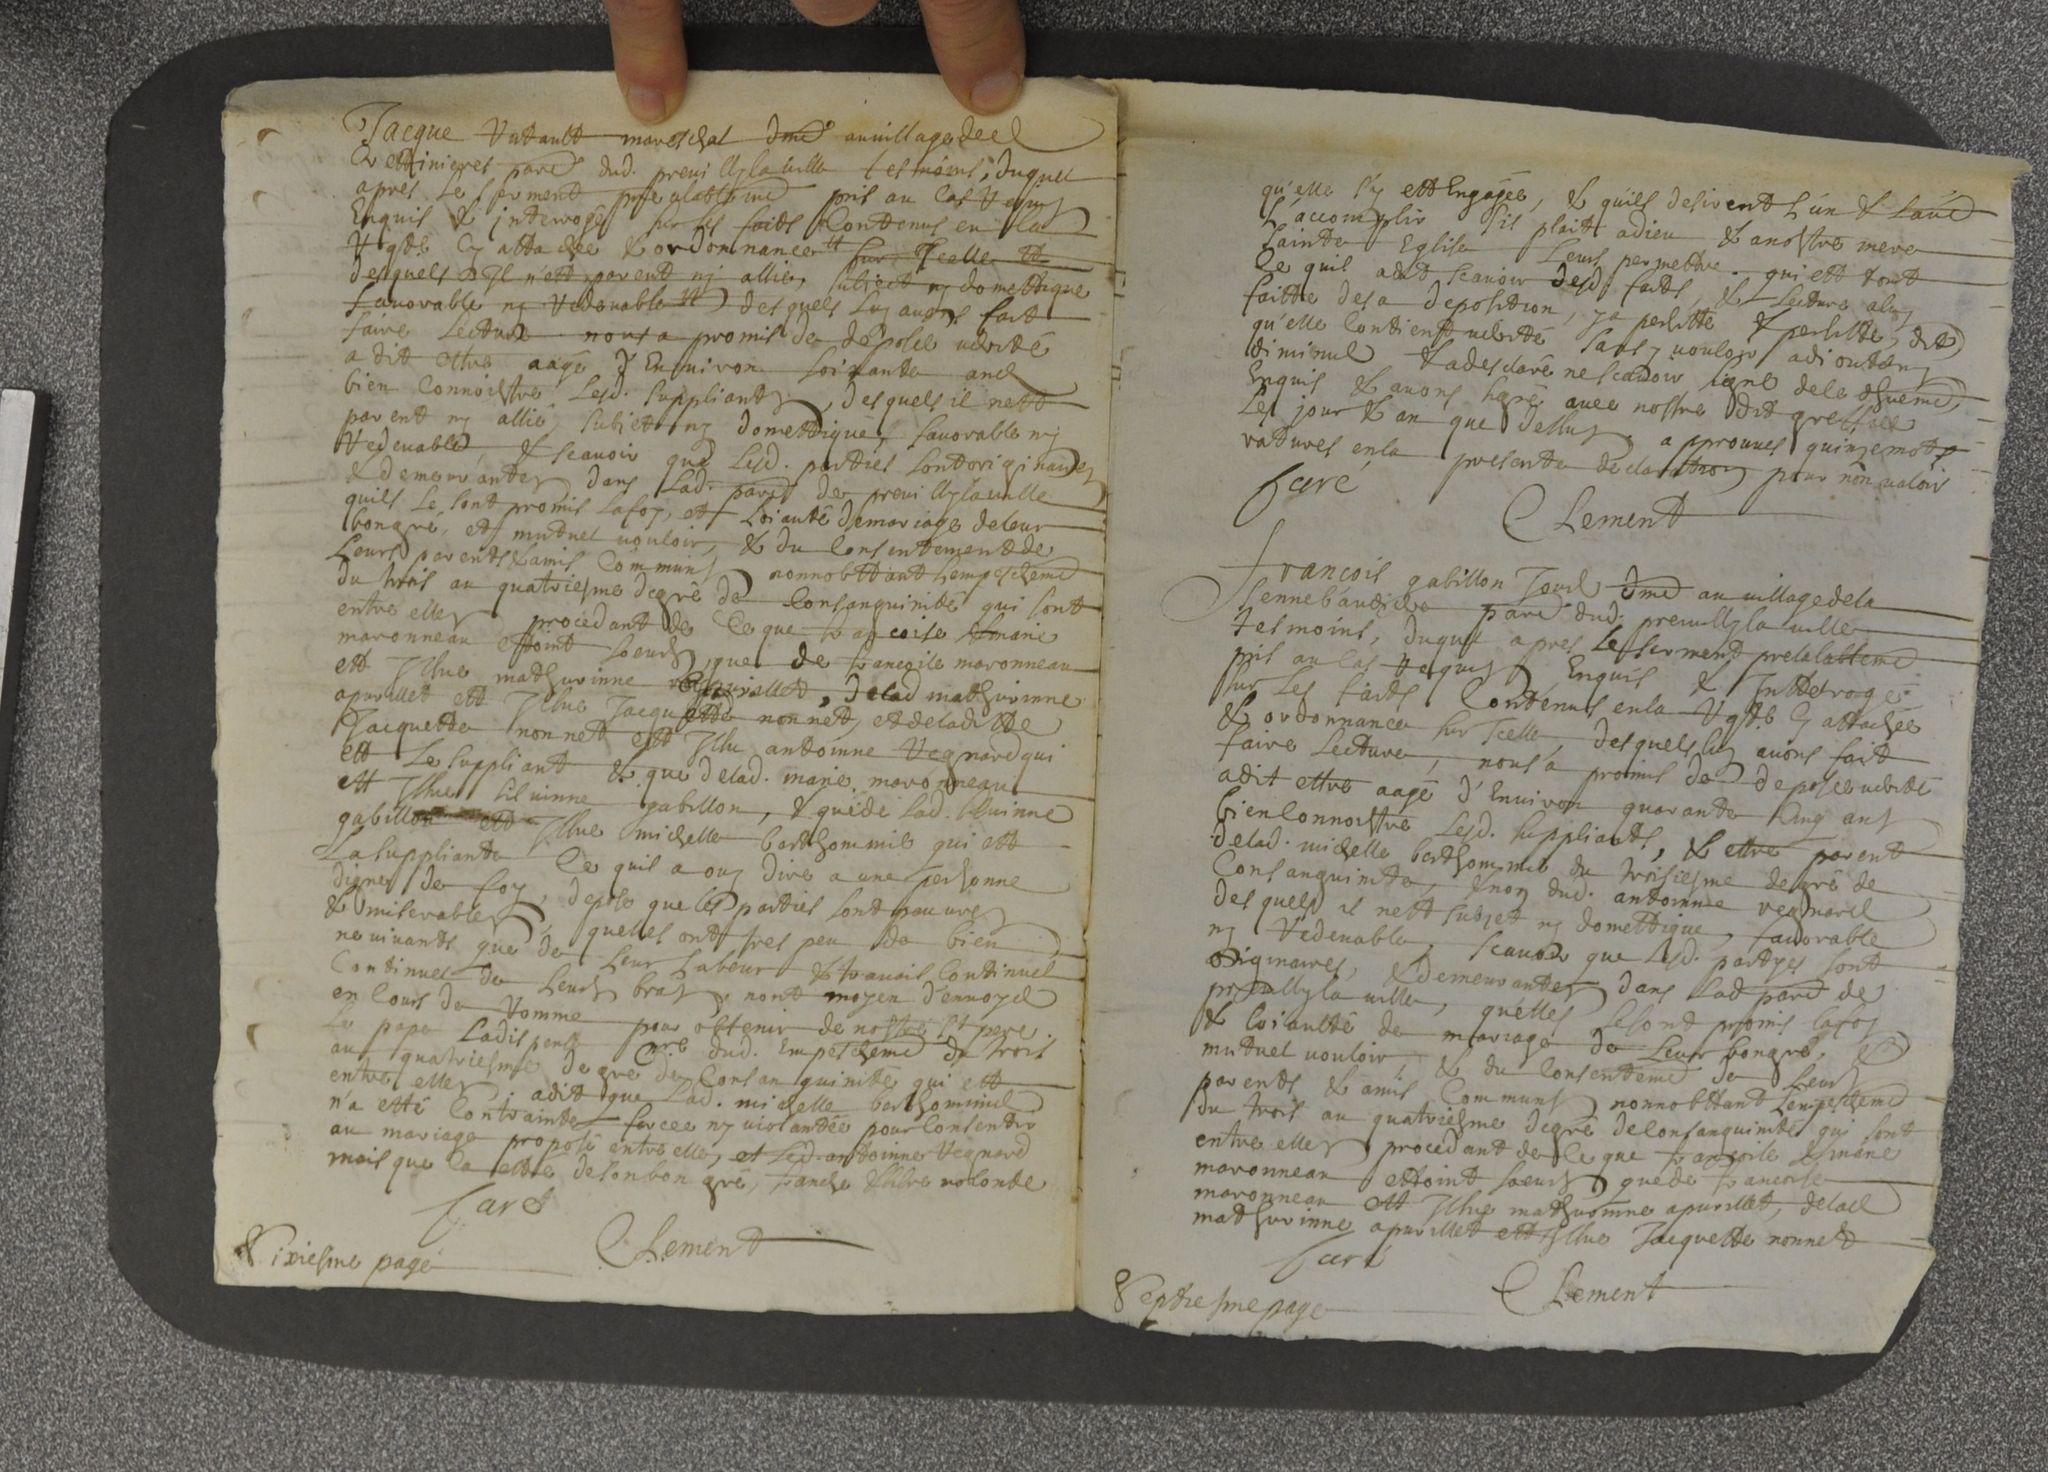 Jacque Vatault mareschal dmt au village de
Crettinieres parr dud. preuilly la ville tesmoins, duquel
apres le serment prealableme pris au cas requis
Enquis & jnterrogé sur les faits Contenus en la
Rqste Cy attachée & ordonnance sur Jcelle
desquels Jl n'est parent ny allié, subiect ny domestique
fauorable ny Redeuable desquels luy auons fait
faire Lecture nous a promis de deposer uerité
a dit estre aagé d'Enuiron soixante ans
bien Connoistre Lesd. suppliants, desquels il nest
parent ny allié, subiet ny domestique, fauorable ny
Redeuable, & scauoir que Lesd. parties sont originaires
& demeurantes dans Lad. parr de preuilly la uille
quils se sont promis la foy, et loiauté de mariage de leur
bongré, et mutuel uouloir, & du Consentement de
Leurs parents & amis Communs nonnobstant Lempeschemt
du trois au quatriesme degré de Consanguinité qui sont
entre elles procedant de Ce que francoise & marie
maronneau estoint soeurs, que de francoise maronneau
est Jssue mathurinne apurillet, de lad mathurinne
apurillet est Jssue Jacquette nonnet, et de laditte
Jacquette nonnet est Jssu antoinne Regnard qui
est Le suppliant & que de lad. marie maronneau
est Jssue siluinne gabillon, & que de lad. siluinne
gabillon est Jssue michelle berthommie qui est
La suppliante Ce quil a ouy dire a une personne
digne de foy, depose que les parties sont pauures
& miserables, quelles ont tres peu de bien
ne uiuants que de Leur Labeur & trauail Continuel
Continuel de Leurs bras, nont moyen d'enuoyer
en Cours de Romme pour obtenir de nostre st pere
Le pape La dispence dud. Empeschemt du trois
au quatriesme degré de Consanguinité qui est
entre elles, a dit que Lad. michelle berthommie
n'a esté Contrainte forcee ny uiolantée pour Consentir
au mariage proposé entre elle, et Led. antoinne Regnard
mais que Ca esté de son bon gré, franche & libre uolonté
faré
Clement
Sixiesme page
qu'elle s'y est Engagée, & quils desirent L'un & L'autre
L'accomplir s'il plait a dieu & a nostre mere
sainte Eglise Leurs permettre. qui est tout
Ce quil a dit scauoir desd. faits, & Lecture a luy
faitte de sa deposition, y a persisté & persiste, dit
qu'elle Contient uerité sans y uouloir adiouter ny
diminuer & a desclaré ne scauoir signer de ce
Enquis & auons signé auec nostre dit greffier
Les jour & an que dessus, approuué quinze mots
raturés en la presente declaration pour non ualoir
faré
Clement
francois gabillon dmt au uillage de la
parr dud. preuilly la uille
tesmoins, duquel apres Le serment prealableme
pris au Cas requis Enquis & Jnterrogé
sur Les faits Contenus en la Rqste Cy attachée
& ordonnance sur Jcelle, desquels luy auons fait
faire Lecture, nous a promis de deposer uerité
a dit estre aagé d'Enuiron quarante Cinq ans
bien Connoistre Lesd. suppliants, & estre parent
de lad. michelle berthommie du troisiesme degré de
Consanguinité, & non dud. antoinne regnard
desquels il nest subjet ny domestique, fauorable
ny Redeuable, scauoir que Lesd. partyes sont
originaires, & demeurantes dans Lad parr de
preuilly la uille, qu'elles se sont promis la foy
& loiaulté de mariage de Leur bongré, &
mutuel uouloir, & du Consenteme de Leurs
parents & amis Communs nonnobstant Lempescheme
du trois au quatriesme degré de Consanguinité qui sont
entre elles, procedant de Ce que francoise & marie
maronneau estoint soeurs que de francoise
maronneau est Jssue mathurinne apurillet, de lad
mathurinne apurillet est Jssue Jacquette nonnet
faré
Clement
Septiesme page